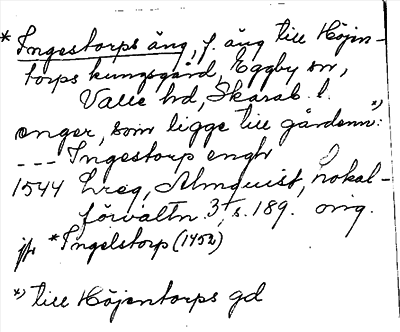 * Ingestorps äng, f. äng till Höjen-
torps kungsgård, Eggby sn,
Valle hd, Skarab. l.
enger, som ligge till gårdenn *):
--- Ingestorp engh
1544 Lreg, Almquist, Lokal-
förvaltn. 3, s. 189. orig.
jfr *Ingelstorp (1452)
*) till Höjentorps gd